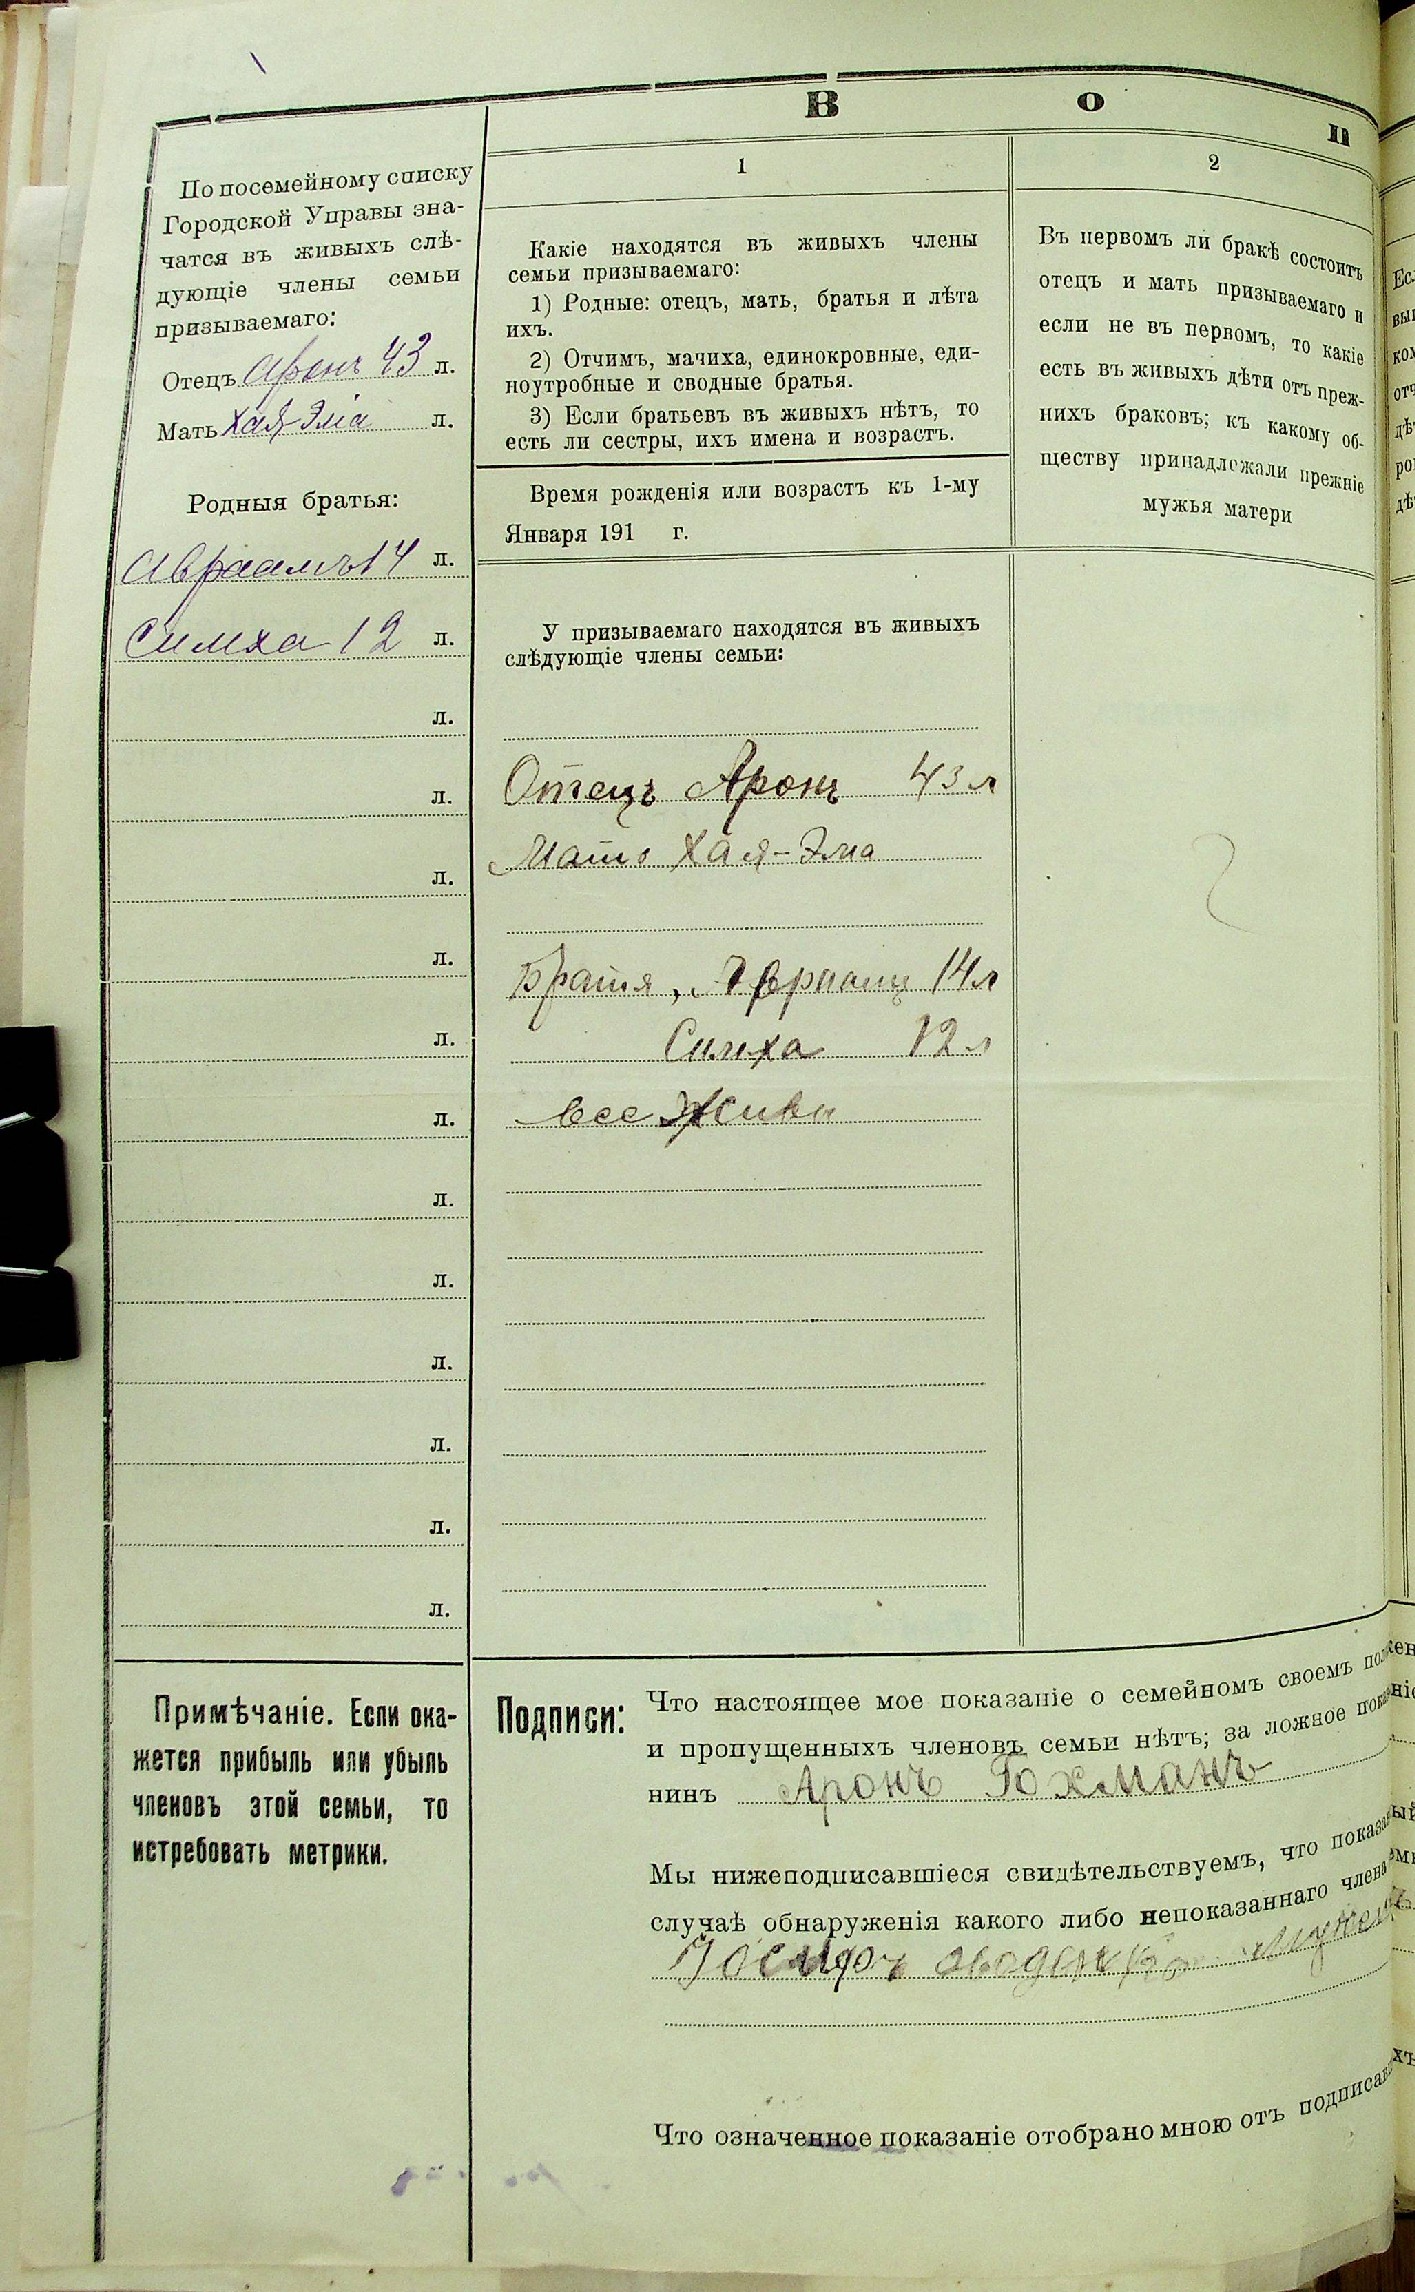 В о п
По посемейному списку
Городской Управы зна-
чатся въ живыхъ слѣ-
дующіе члены семьи
призываемаго:
Отецъ Аронъ 43 л.
Мать Хая-Эліа л.
Родныя братья:
Авраамъ 14 л.
Симха 12 л.
л.
л.
л.
л.
л.
л.
л.
л.
л.
л.
л.
л.
Примѣчаніе. Если ока-
жется прибыль или убыль
членовъ этой семьи, то
истребовать метрики.
1
Какіе находятся въ живыхъ члены
семьи призываемаго:
1) Родные: отецъ, мать, братья и лѣта
ихъ.
2) Отчимъ, мачиха, единокровные, еди-
ноутробные и сводные братья.
3) Если братьевъ въ живыхъ нѣтъ, то
есть ли сестры, ихъ имена и возрастъ.
Время рожденія или возрастъ къ 1-му
Января 191 г.
У призываемаго находятся въ живыхъ
слѣдующіе члены семьи:
Отецъ Аронъ 43 л
Мать Хая-Элиа
Братя, Авраамъ 14 л
Симха 12 л
все живы
2
Въ первомъ ли бракѣ состоитъ
отецъ и мать призываемаго и
если не въ первомъ, то какіе
есть въ живыхъ дѣти отъ преж-
нихъ браковъ; къ какому об-
ществу принадлежали прежніе
мужья матери
Подписи:
Что настоящее мое показаніе о семейномъ своемъ
и пропущенныхъ членовъ семьи нѣтъ; за ложное
нинъ Аронъ Гохманъ
Мы нижеподписавшіеся свидѣтельствуемъ, что
случаѣ обнаруженія какого либо непоказаннаго члена
Что означенное показаніе отобрано мною отъ